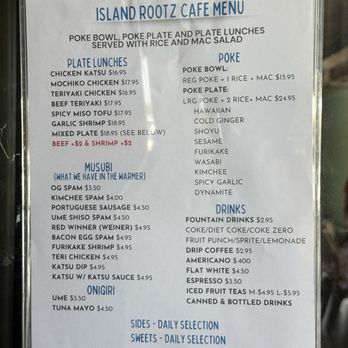 ISLAND ROOTZ CAFE MENU
POKE BOWL, POKE PLATE AND PLATE LUNCHES
SERVED WITH RICE AND MAC SALAD
PLATE LUNCHES
CHICKEN KATSU $16.95
MOCHIKO CHICKEN $17.95
TERIYAKI CHICKEN $16.95
BEEF TERIYAKI $17.95
SPICY MISO TOFU $17.95
GARLIC SHRIMP $18.95
MIXED PLATE $18.95 (SEE BELOW)
BEEF +$2 & SHRIMP +$2
MUSUBI
(WHAT WE HAVE IN THE WARMER)
OG SPAM $3.50
KIMCHEE SPAM $4.00
PORTUGUESE SAUSAGE $4.50
UME SHISO SPAM $4.50
RED WINNER (WEINER) $4.95
BACON EGG SPAM $4.95
FURIKAKE SHRIMP $4.95
TERI CHICKEN $4.95
KATSU DIP $4.95
KATSU W/ KATSU SAUCE $4.95
ONIGIRI
UME $3.50
TUNA MAYO $4.50
POKE
POKE BOWL:
REG POKE + 1 RICE + MAC $15.95
POKE PLATE:
LRG POKE + 2 RICE + MAC $24.95
HAWAIIAN
COLD GINGER
SHOYU
SESAME
FURIKAKE
WASABI
KIMCHEE
SPICY GARLIC
DYNAMITE
DRINKS
FOUNTAIN DRINKS $2.95
COKE/DIET COKE/COKE ZERO
FRUIT PUNCH/SPRITE/LEMONADE
DRIP COFFEE $2.95
AMERICANO $.400
FLAT WHITE $4.50
ESPRESSO $3.50
ICED FRUIT TEAS M-$4.95 L-$5.95
CANNED & BOTTLED DRINKS
SIDES - DAILY SELECTION
SWEETS - DAILY SELECTION